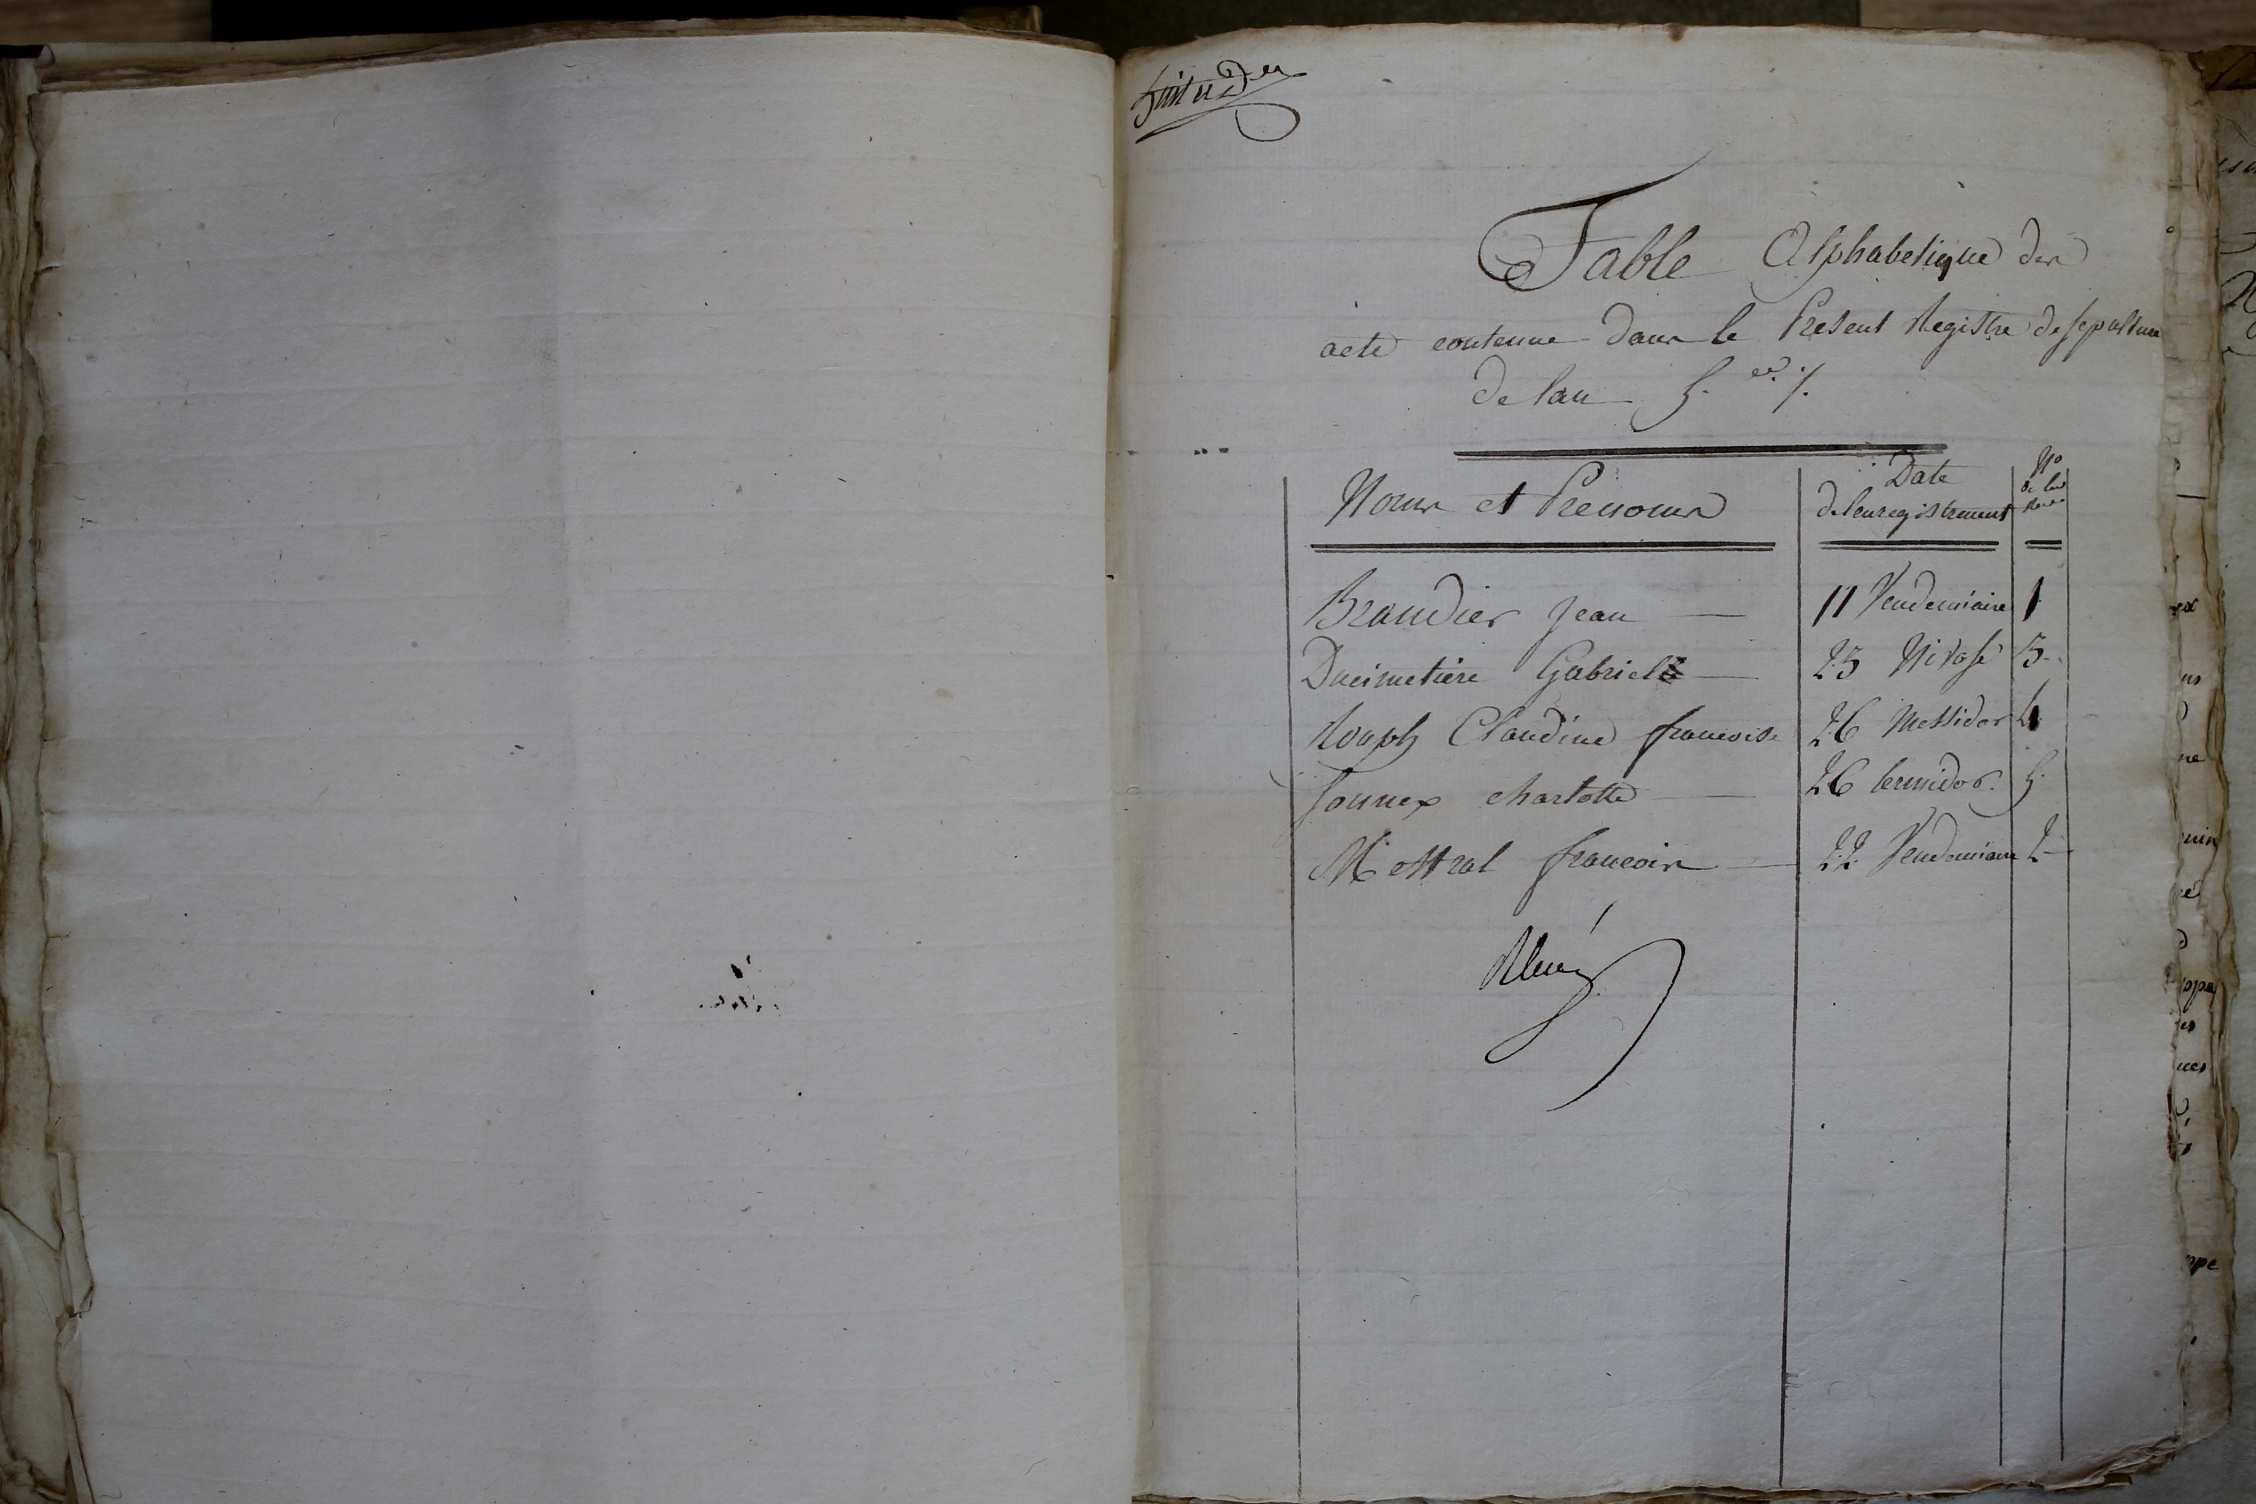 huit
Table Alphabetique des
acte contenue dans le Present Registre de sepulture
de lan 5.
Noms et Prenoms
Date
de lenregistrement
No
de
Brandier Jean
11 Vendemiaire
1
Ducimetiere Gabriel
23 Nivose
3
Claudine francoise
26 Messidor
4
Jonnex charlotte
26 termidor.
5.
Mestral francois
22 Vendemiaire
2